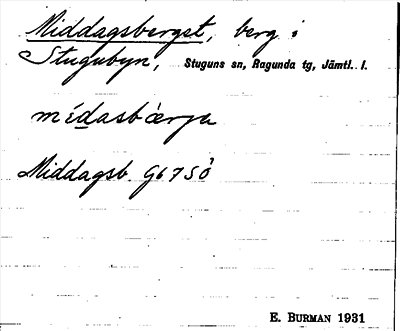 Middagsberget, berg i
Stugubyn, Stuguns sn, Ragunda tg, Jämtl. l.
mídasbàrja
Middagsb. G67SÖ
E. BURMAN 1931